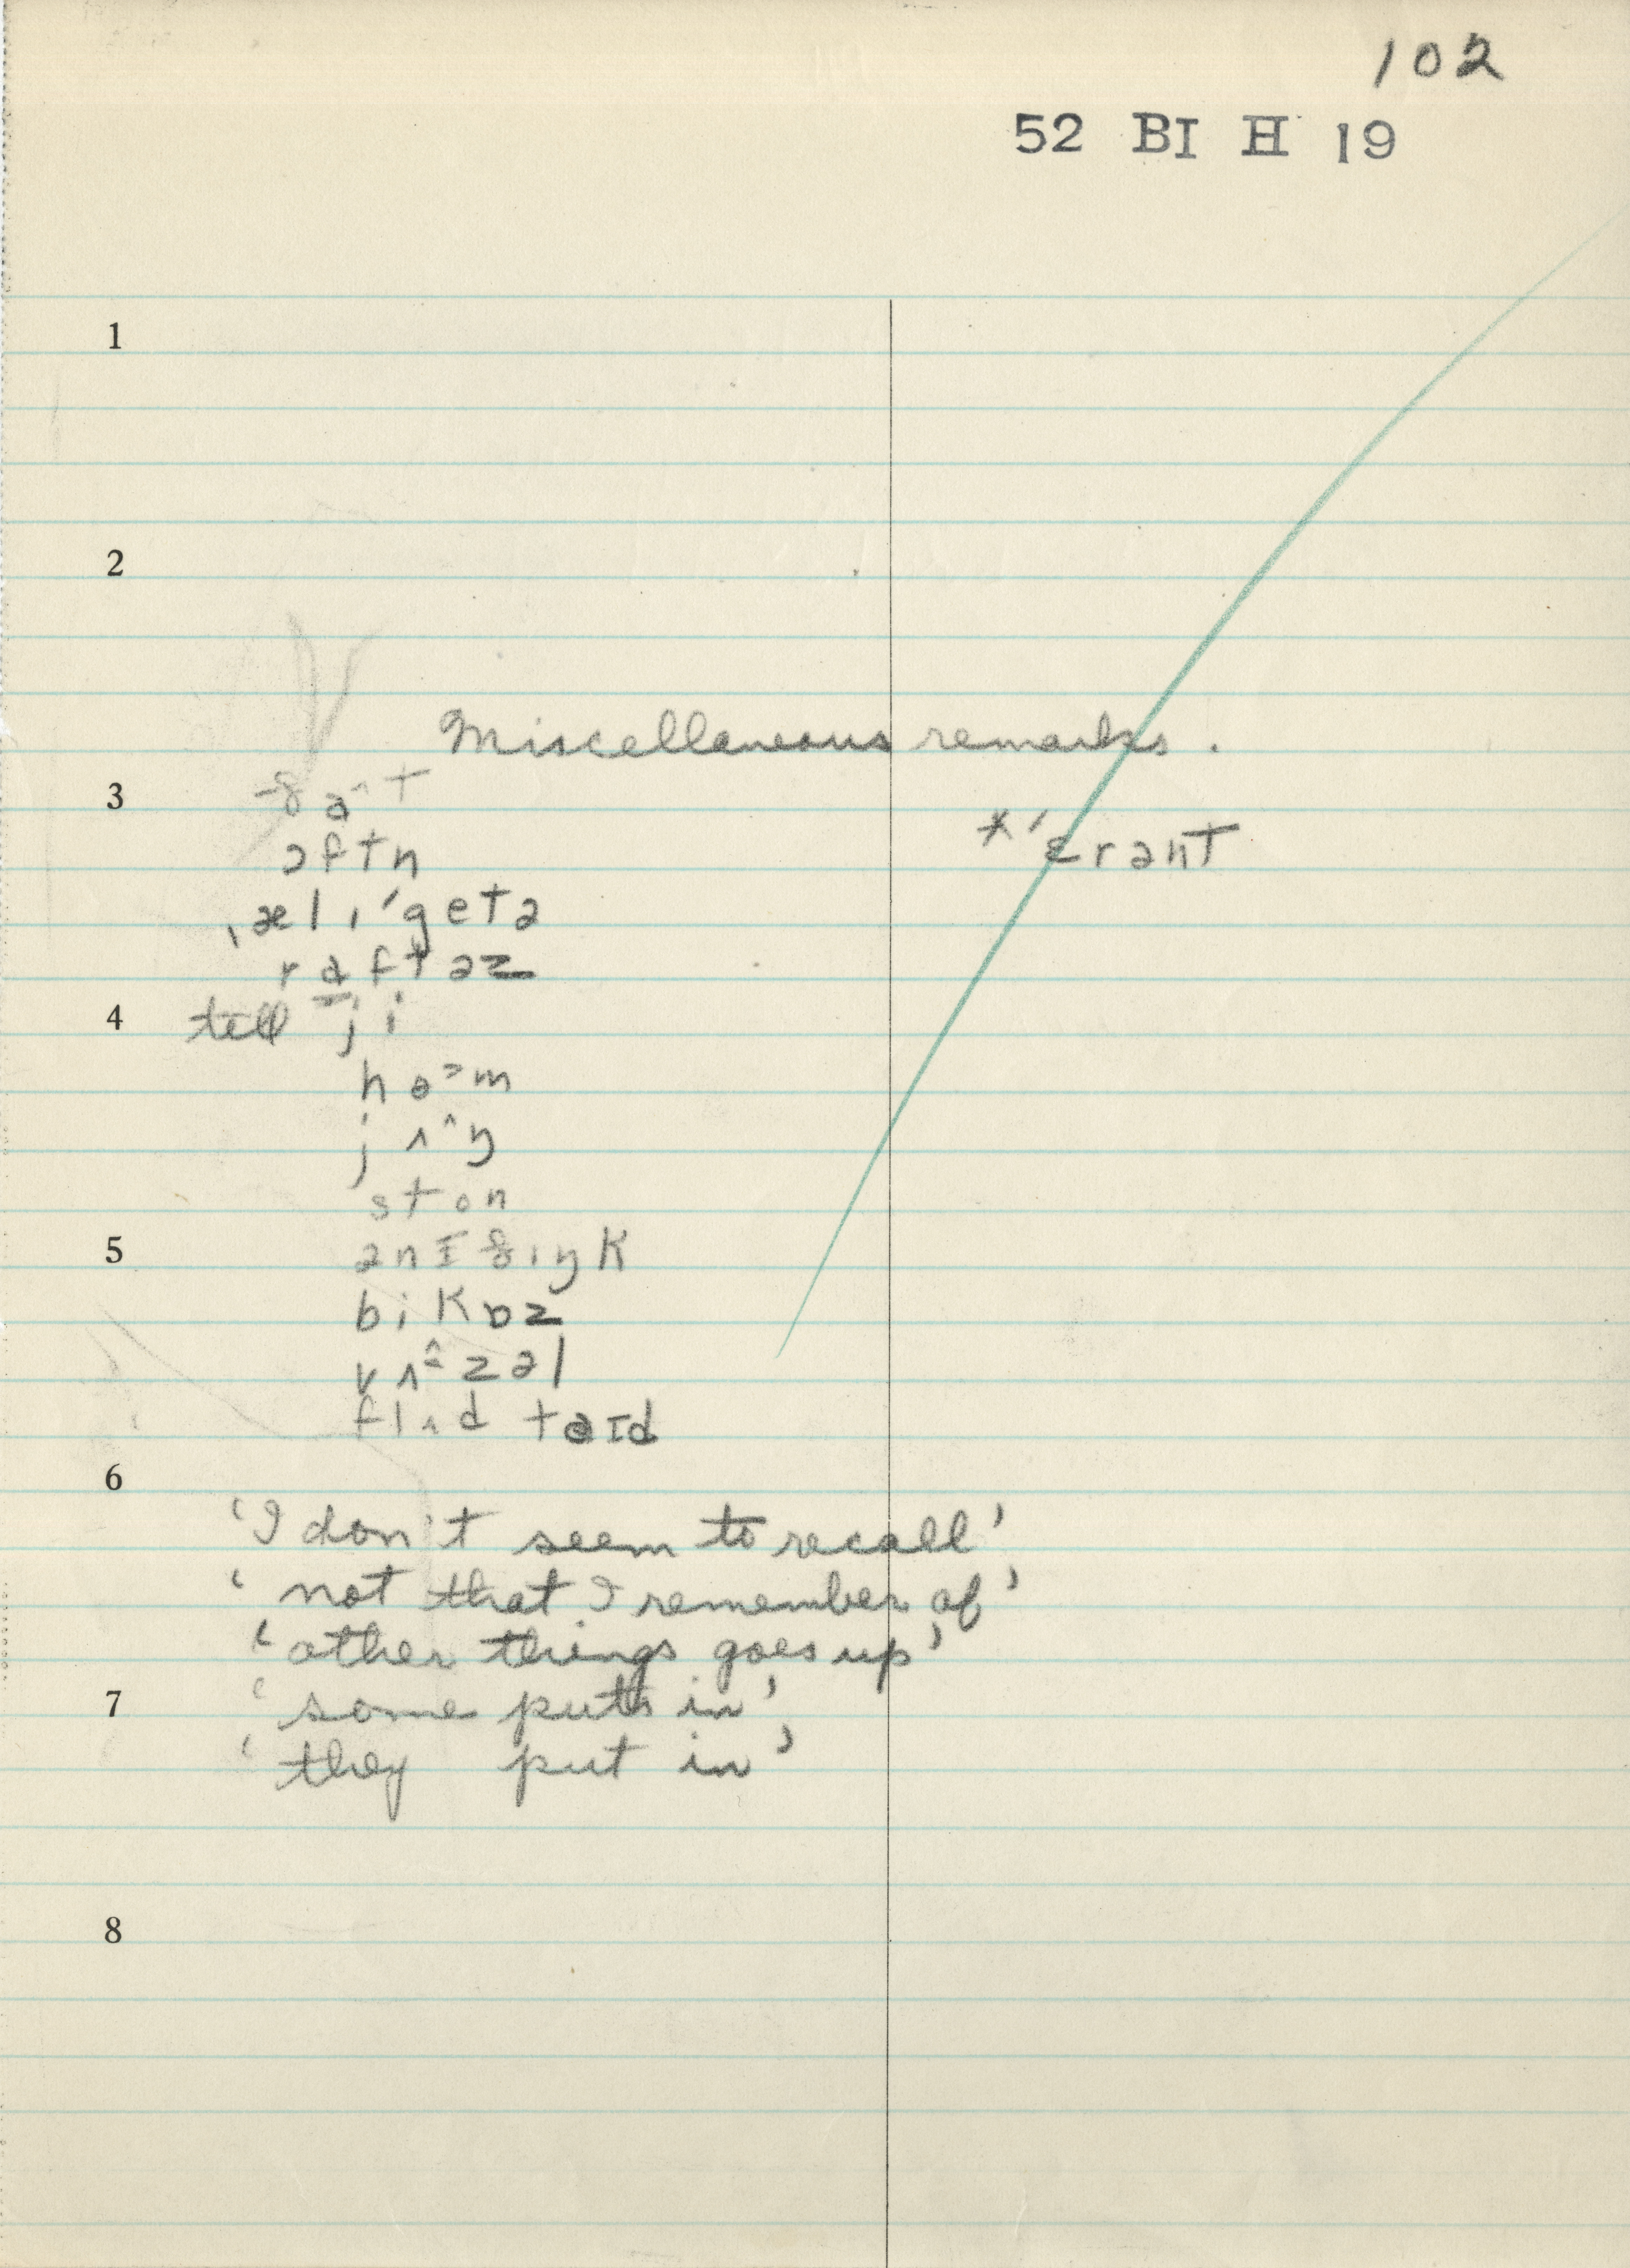 102
52 BI H 19
1
2
Miscellaneous remarks.
3
*ˈɛrənt
ɔftn
ˌælɪˈgetə
rɑftəz
4 tell ji
hoᵊm
jʌ^ŋ
ston
5 ənɪθɪŋk
bikɒz
vʌ^zəl
flʌd taɪd
6
'I don't seem to recall'
'not that I remember of'
'other things goes up'
7 'some puts in'
'they put in'
8